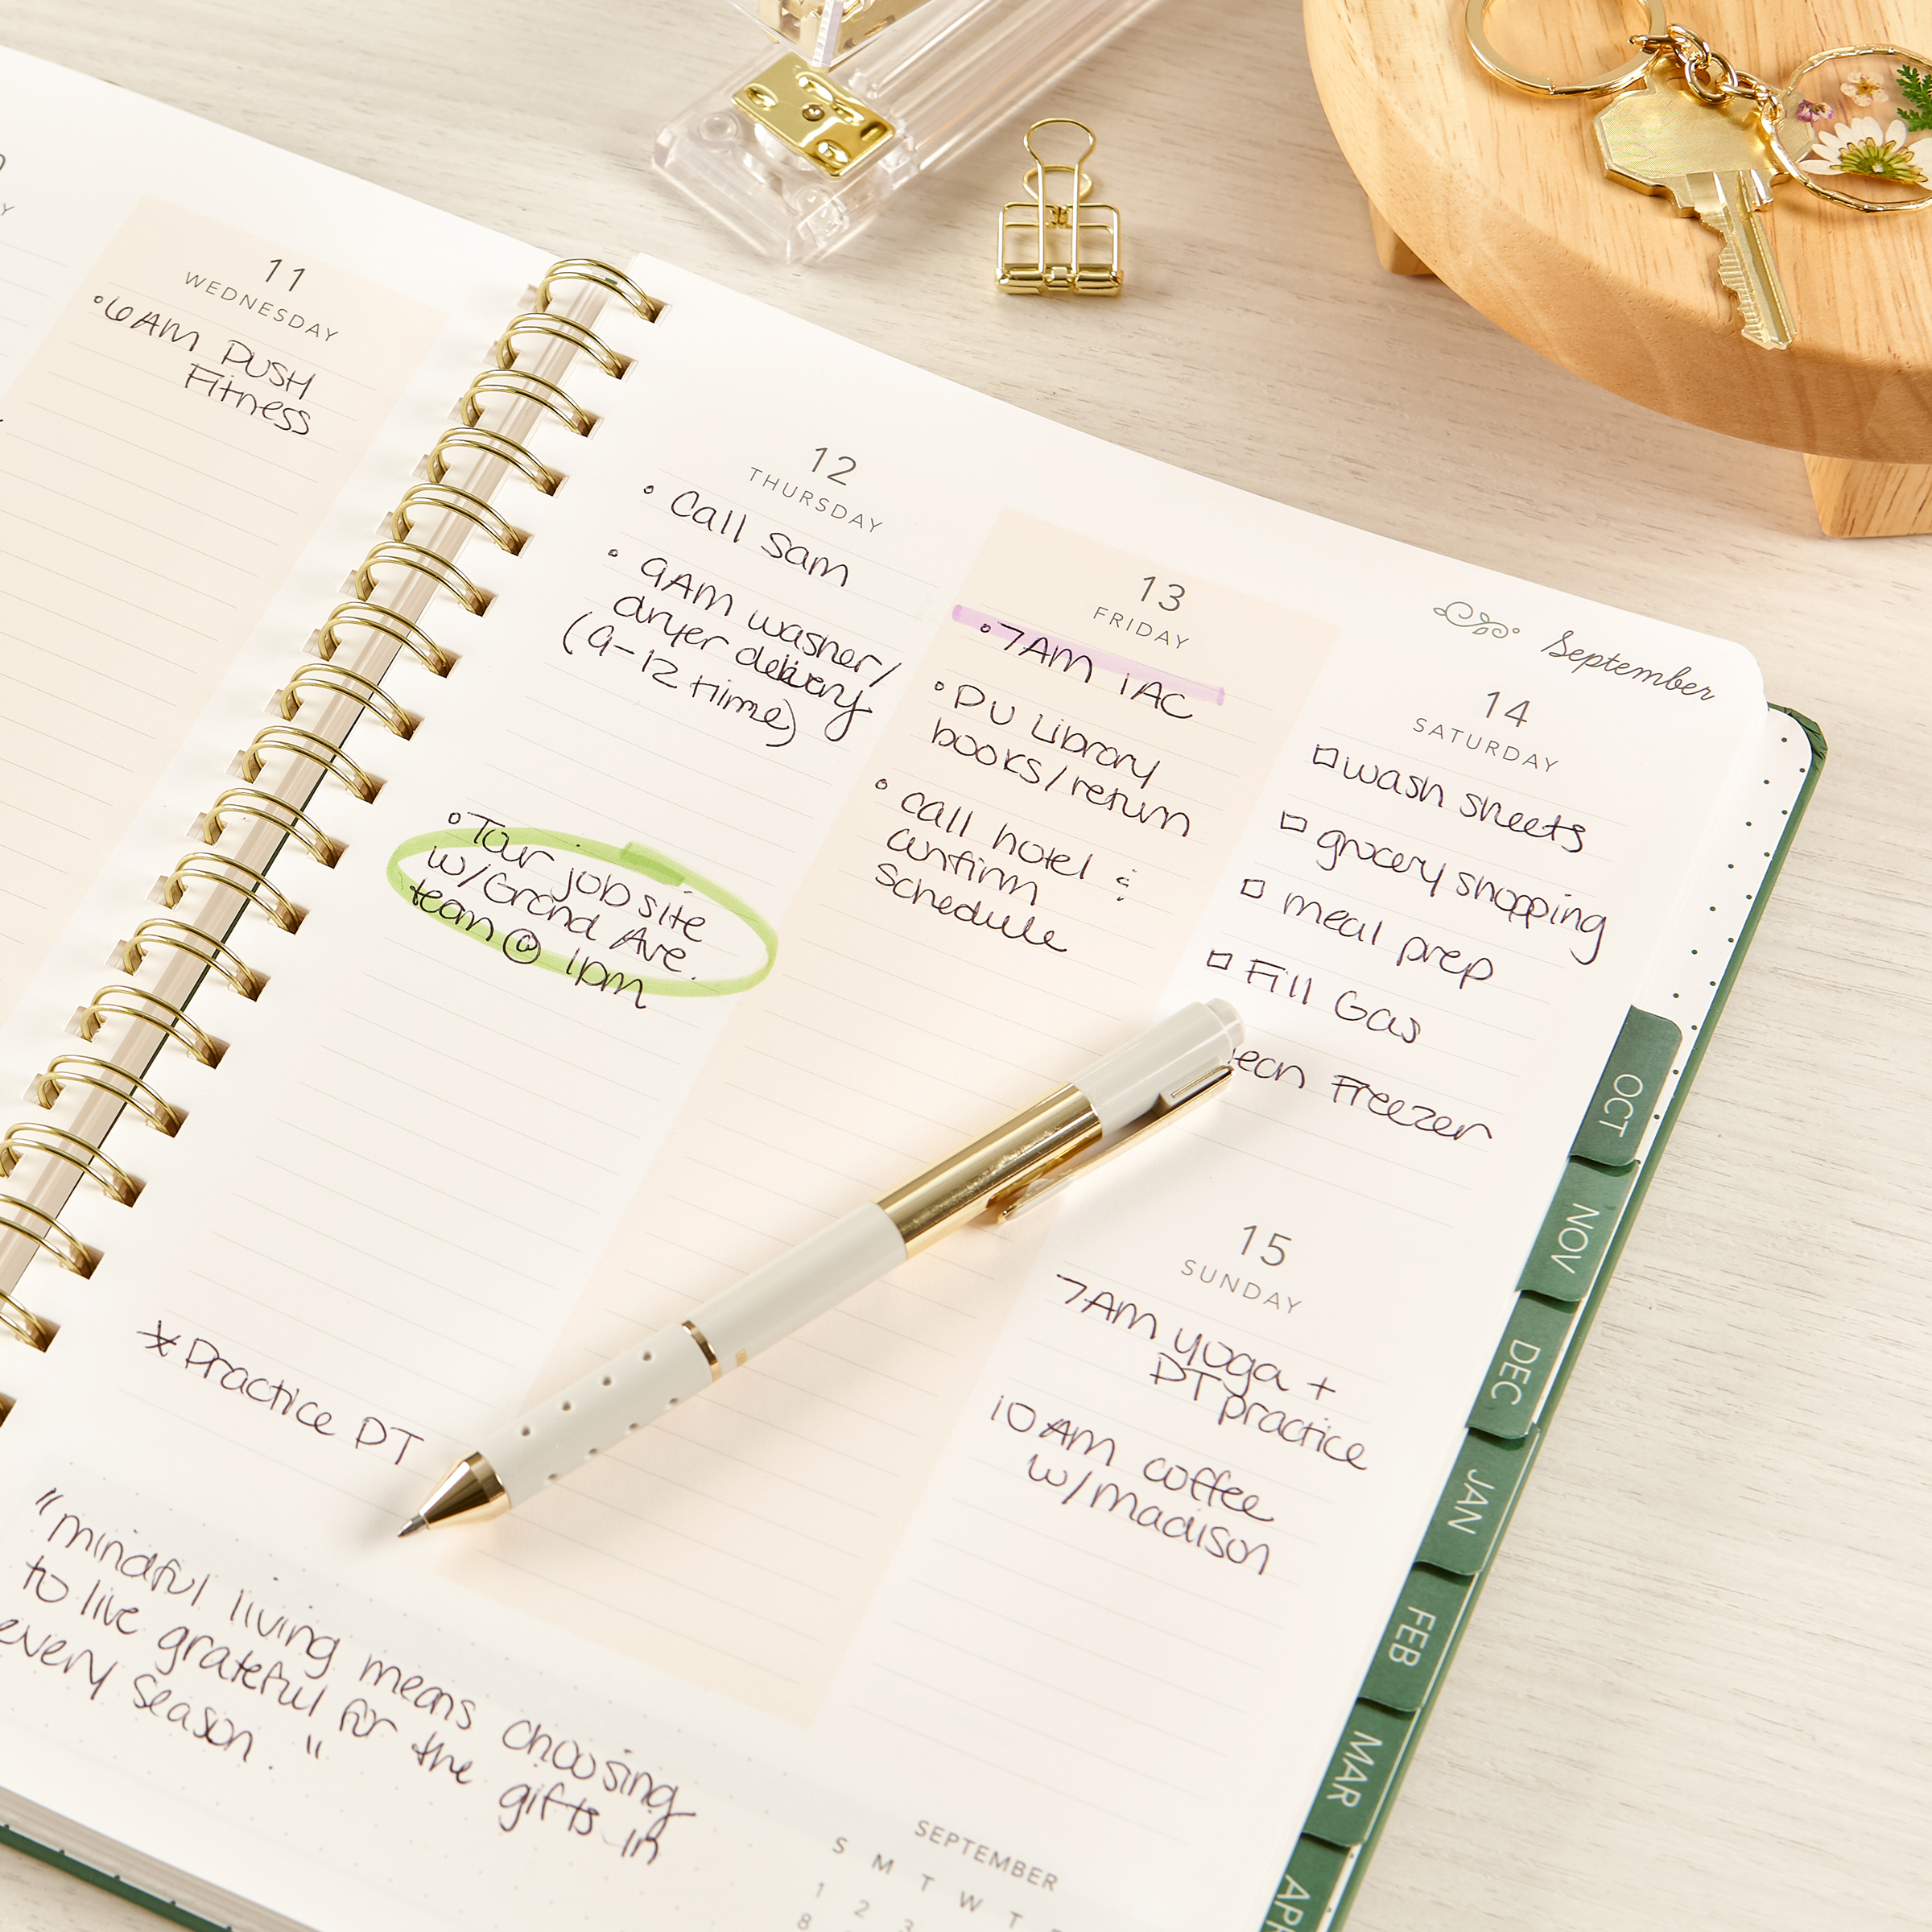 11
WEDNESDAY
• 6AM PUSH
Fitness
12
THURSDAY
• Call Sam
• 9AM washer/
dryer delivery
(9-12 time)
• Tour job site
w/Grand Ave.
team @ 1pm
* Practice DT
13
FRIDAY
• 7AM iAC
• PU Library
books/return
• call hotel &
confirm
schedule
September
14
SATURDAY
□ wash sheets
□ grocery shopping
□ meal prep
□ Fill Gas
ean Freezer
15
SUNDAY
7AM yoga +
DT practice
10 AM coffee
w/madison
"mindful living means choosing
to live grateful for the gifts in
every season."
SEPTEMBER
S M T W T
1 2 3
8
OCT
NOV
DEC
JAN
FEB
MAR
APR